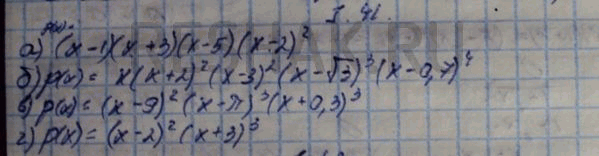 I. 41.
p(x)=
а) (x-1)(x+3)(x-5)(x-2)²
б) p(x)= x(x+2)²(x-3)²(x-√3)³(x-0,7)⁴
в) p(x)= (x-9)²(x-π)³(x+0,3)³
г) p(x)= (x-2)²(x+3)³